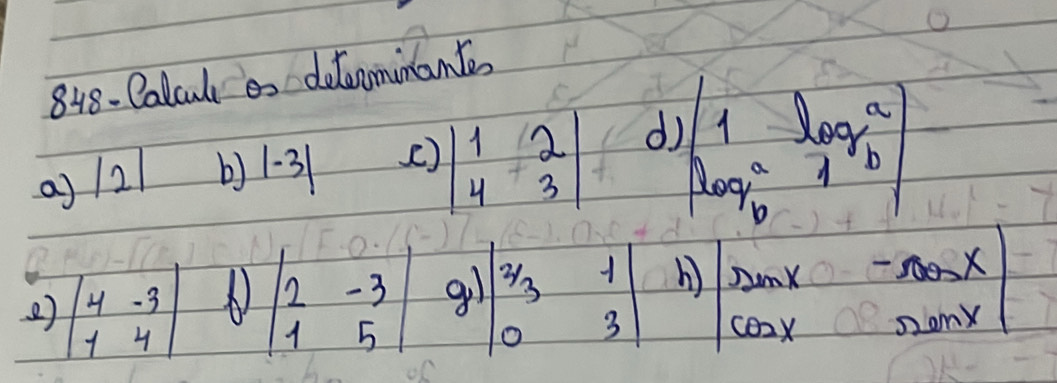 848-Calcule os determinantes
a) |2| b) |-3| c) |1 2| d) |1 log_b^a|
|4 3| |log_b^a 1|
e) |4 -3| f) |2 -3| g) |2/3 1| h) |senx -cosx|
|1 4| |1 5| |0 3| |cosx senx|